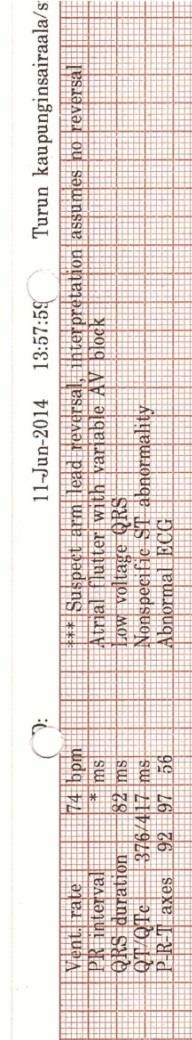 D: 11-Jun-2014 13:57:59 Turun kaupunginsairaala/s
Vent. rate 74 bpm *** Suspect arm lead reversal, interpretation assumes no reversal
PR interval * ms Atrial flutter with variable AV block
QRS duration 82 ms Low voltage QRS
QT/QTc 376/417 ms Nonspecific ST abnormality
P-R-T axes 92 97 56 Abnormal ECG